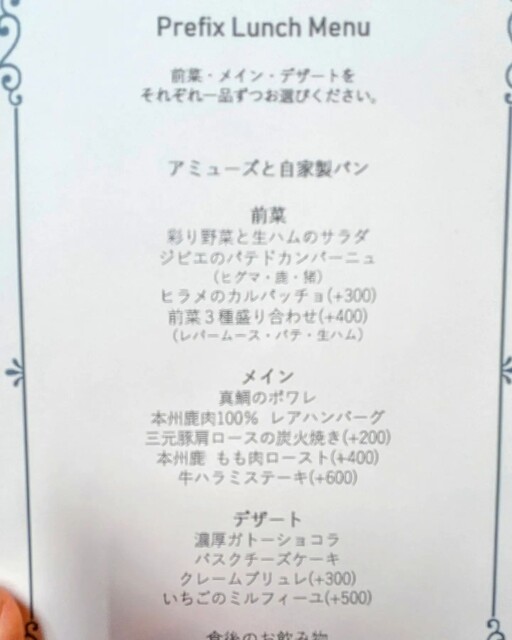 Prefix Lunch Menu
前菜・メイン・デザートを
それぞれ一品ずつお選びください。
アミューズと自家製パン
前菜
彩り野菜と生ハムのサラダ
ジビエのパテドカンパーニュ
(ヒグマ・鹿・猪)
ヒラメのカルパッチョ(+300)
前菜３種盛り合わせ(+400)
(レバームース・パテ・生ハム)
メイン
真鯛のポワレ
本州鹿肉100% レアハンバーグ
三元豚肩ロースの炭火焼き(+200)
本州鹿 もも肉ロースト(+400)
牛ハラミステーキ(+600)
デザート
濃厚ガトーショコラ
バスクチーズケーキ
クレームブリュレ(+300)
いちごのミルフィーユ(+500)
食後のお飲み物